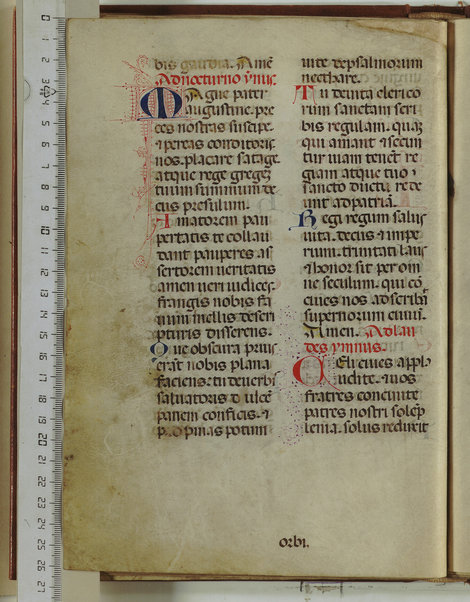 bis gaudia. Amē
Ad nocturno ymus.
Magne pater
augustine. pre
ces nostras suscipe.
⁊ per eas conditoris
nos. placare satage.
atque rege gregez
tuum summum de
cus presulum.
Amatorem pau
pertatis te collau
dant pauperes. as
sertorem ueritatis
amen ueri iudices.
frangis nobis fa
uum mellis descri
pturis disserens.
Que obscura prius
erāt nobis plana
faciens. tu de uerbis
saluatoris dulcē
panem conficis. ⁊
propinas potum
uite de psalmorum
necthare.
Tu de uita clerico
rum sanctam scri
bis regulam. quaz
qui amant ⁊ secun
tur uiam tenēt re
giam atque tuo
sancto ductu rede
unt ad patriā.
Regi regum salus
uita. decus ⁊ impe
rium. trinitati laus
⁊ honor sit per om
ne seculum. qui cō
ciues nos adscribā
supernorum ciuiū.
Amen. Ad lau
des ymnus.
Celi ciues appla
udite. ⁊ uos
fratres concinite
patres nostri solēp
lenia. solus reduxit
orbi.